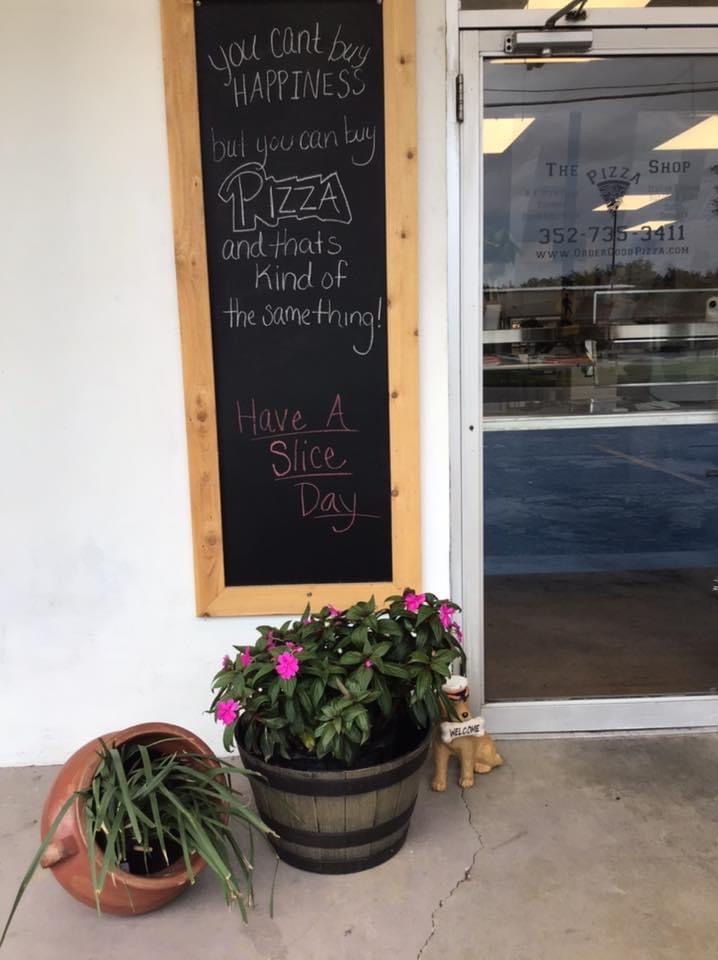 you cant buy
HAPPINESS
but you can buy
PIZZA
and thats
Kind of
the same thing!
Have A
Slice
Day
THE PIZZA SHOP
352-735-3411
WWW.ORDERGOODPIZZA.COM
WELCOME